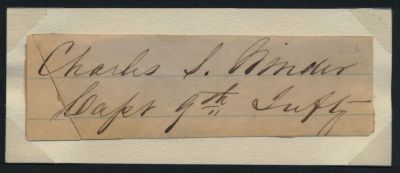 Charles S. Binder
Capt 9th Infty